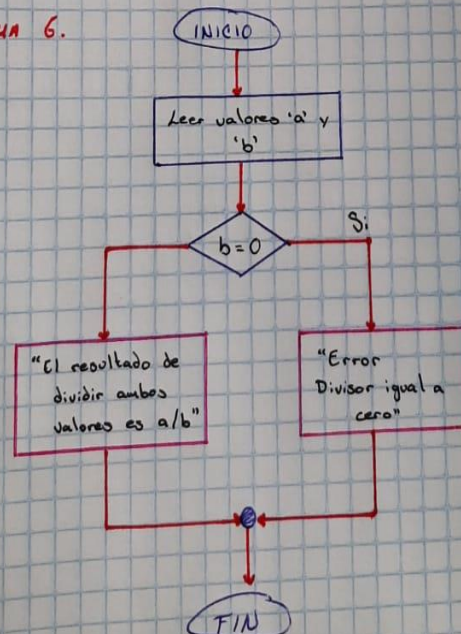 6.
INICIO
Leer valores 'a' y
'b'
Si
b=0
"El resultado de
dividir ambos
valores es a/b"
"Error
Divisor igual a
cero"
FIN